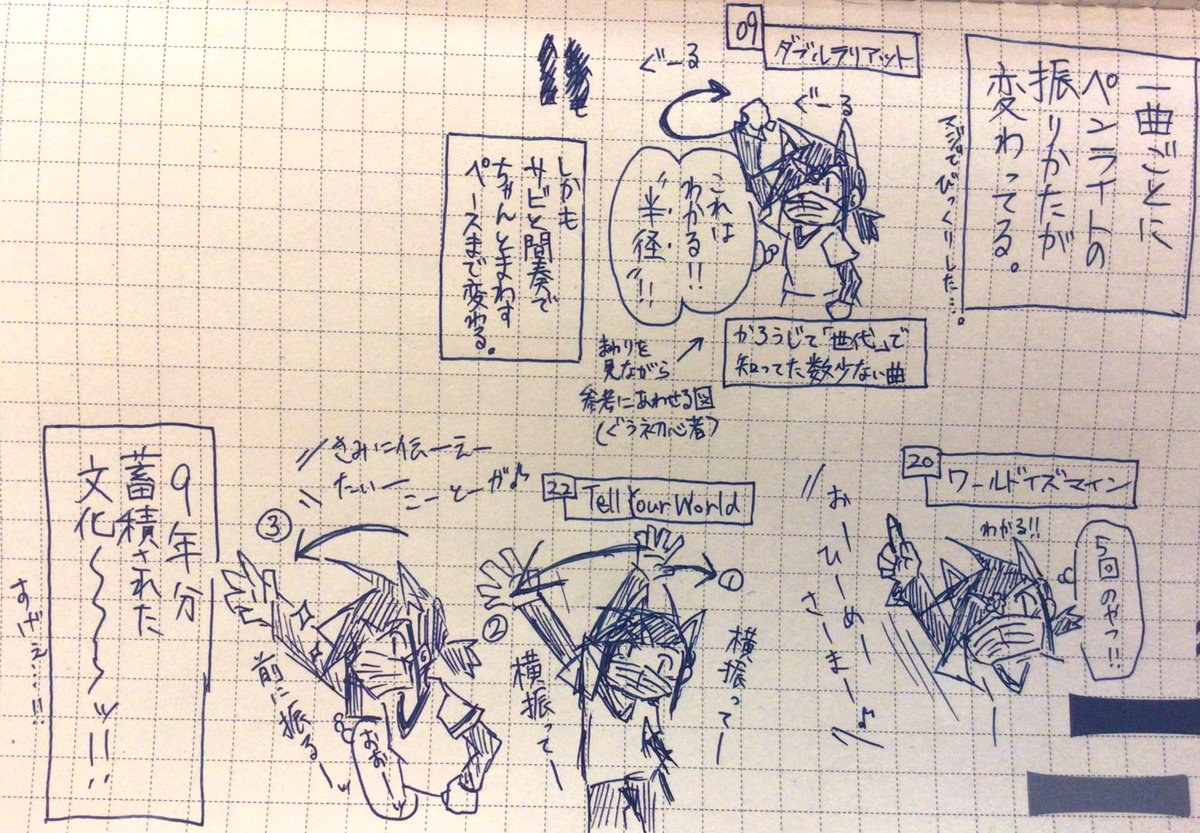 一曲ごとに
ペンライトの
振りかたが
変わってる。
マジでびっくりした…。
09
ダブルラリアット
ぐーる
ぐーる
これは
わかる!!
"半径"!!
しかも
サビと間奏で
ちゃんとまわす
ペースまで変わる。
かろうじて「世代」で
知ってた数少ない曲
まわりを
見ながら
参考にあわせる図
(ぐう初心者)
20
ワールドイズマイン
わかる!!
5回のやつ!!
おーひーめー
さーまー♪
22
Tell Your World
①
横振ってー
②
横振ってー
きみに伝ーえー
たいー
ことーがよ♪
③
前に振るーッ
おおーッ
9年分
蓄積された
文化〜〜〜〜ッ!!
すげぇ…!!!